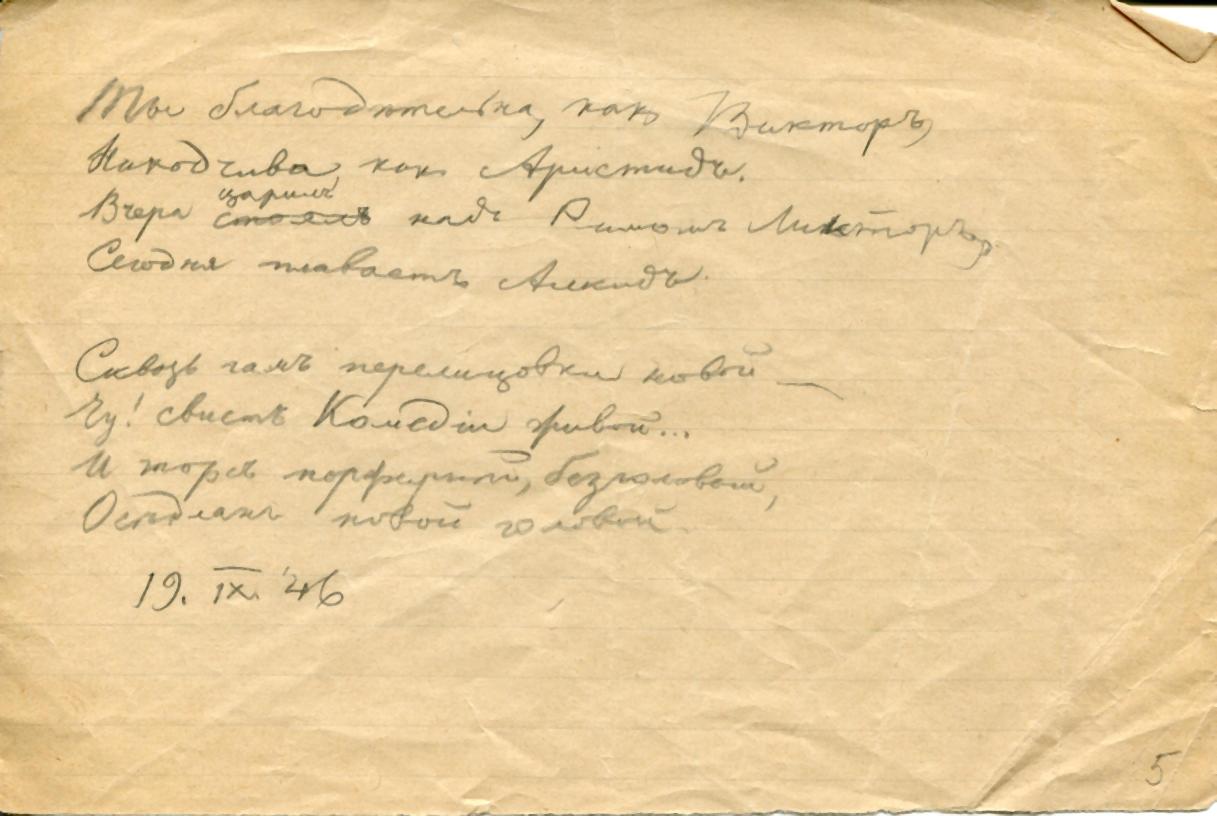 Ты благодѣтельна, какъ Викторъ,
Находчива, какъ Аристидъ.
Вчера царилъ стоялъ надъ Римомъ Ликторъ,
Сегодня плаваетъ Алкидъ.
Сквозь гамъ перелицовки новой —
Чу! свистъ Комедіи живой...
И торсъ порфирный, безголовый,
Осѣдланъ новой головой.
19. IX. '46
5